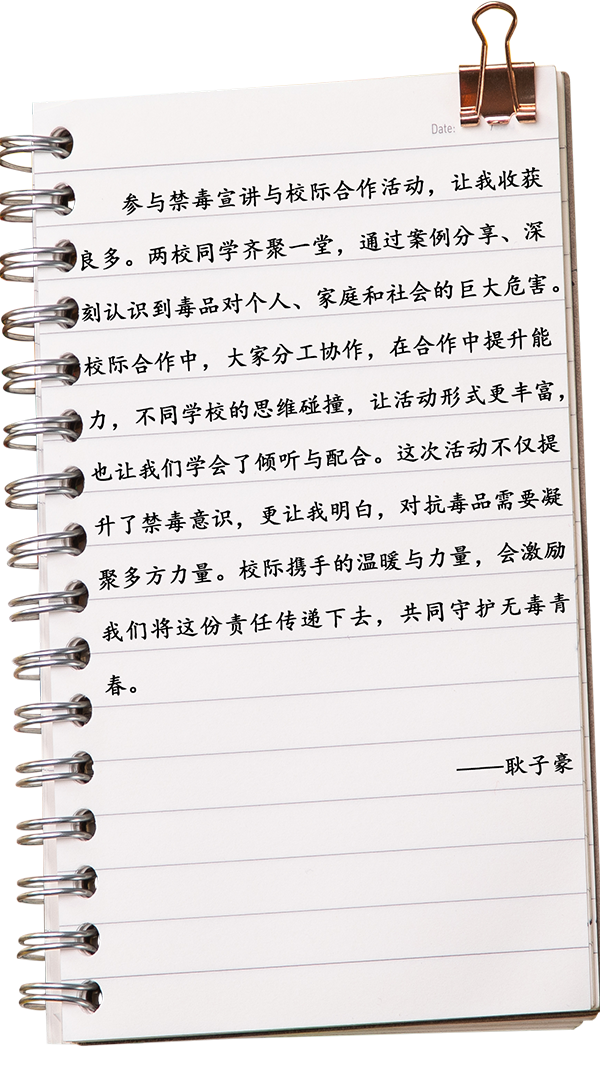 Date:
参与禁毒宣讲与校际合作活动，让我收获
良多。两校同学齐聚一堂，通过案例分享、深
刻认识到毒品对个人、家庭和社会的巨大危害。
校际合作中，大家分工协作，在合作中提升能
力，不同学校的思维碰撞，让活动形式更丰富，
也让我们学会了倾听与配合。这次活动不仅提
升了禁毒意识，更让我明白，对抗毒品需要凝
聚多方力量。校际携手的温暖与力量，会激励
我们将这份责任传递下去，共同守护无毒青
春。
——耿子豪